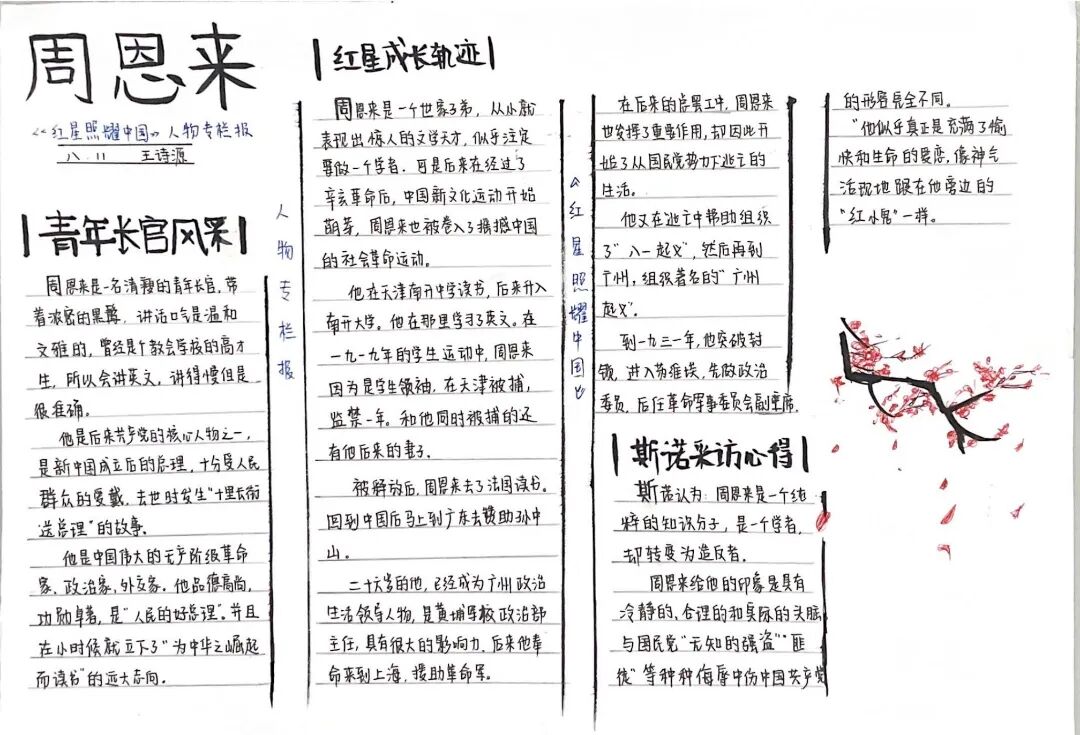 周恩来
《红星照耀中国》人物专栏报
八.11 王诗源
青年长官风采
周恩来是一名清瘦的青年长官,带
着浓密的黑髯,讲话口气是温和
文雅的,曾经是个教会学校的高才
生,所以会讲英文,讲得慢但是
很准确。
他是后来共产党的核心人物之一,
是新中国成立后的总理,十分受人民
群众的爱戴,去世时发生"十里长街
送总理"的故事。
他是中国伟大的无产阶级革命
家、政治家、外交家。他品德高尚,
功勋卓著,是"人民的好总理"。并且
在小时候就立下了"为中华之崛起
而读书"的远大志向。
人物专栏报
红星成长轨迹
周恩来是一个世家子弟,从小就
表现出惊人的文学天才,似乎注定
要做一个学者.可是后来在经过了
辛亥革命后,中国新文化运动开始
萌芽,周恩来也被卷入了撼撼中国
的社会革命运动。
他在天津南开中学读书,后来升入
南开大学。他在那里学习了英文。在
一九一九年的学生运动中,周恩来
因为是学生领袖,在天津被捕,
监禁一年。和他同时被捕的还
有他后来的妻子.
被解放后,周恩来去了法国读书。
回到中国后马上到广东去赞助孙中
山。
二十六岁的他,已经成为广州政治
生活领导人物,是黄埔军校政治部
主任,具有很大的影响力.后来他奉
命来到上海,援助革命军。
《红星照耀中国》
在后来的启罢工中,周恩来
也发挥了重要作用,却因此开
始了从国民党势力下逃亡的
生活。
他又在逃亡中帮助组织
了"八一起义",然后再到
广州,组织著名的"广州
起义"。
到一九三一年,他突破封
锁,进入苏维埃,先做政治
委员,后任革命军事委员会副主席.
斯诺采访心得
斯诺认为:周恩来是一个纯
粹的知识分子,是一个学者,
却转变为造反者.
周恩来给他的印象是具有
冷静的、合理的和实际的头脑
与国民党"无知的强盗""匪
徒"等种种侮辱中伤中国共产党
的形容完全不同。
"他似乎真正是充满了愉
快和生命的爱恋,像神气
活现地跟在他旁边的
"红小鬼"一样。